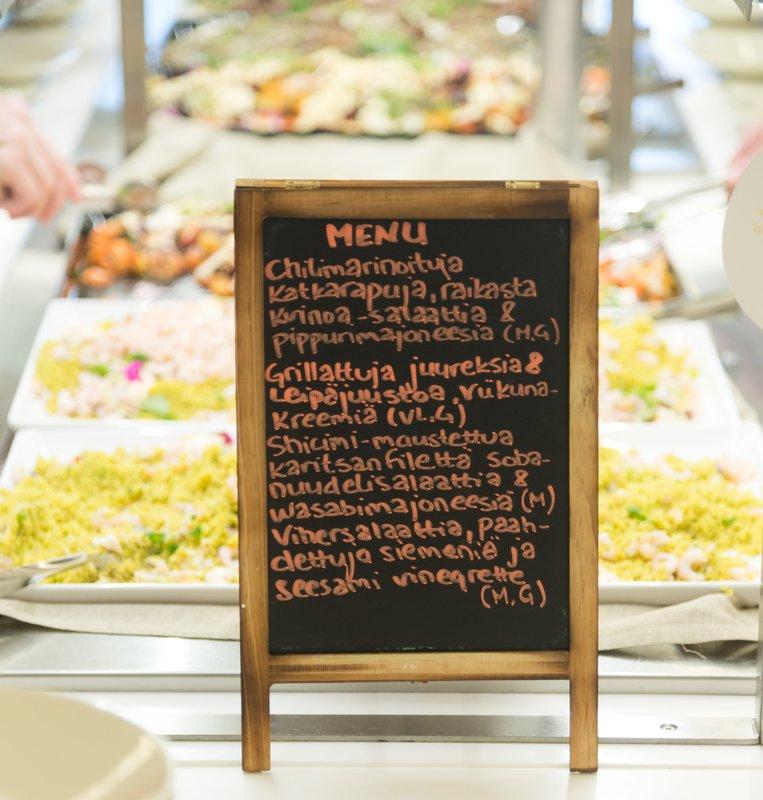 MENU
Chilimarinoituja
Katkarapuja, raikasta
kvinoa-salaattia &
pippurimajoneesia (M.G)
Grillattuja juureksia &
Leipäjuustoa, viikuna-
kreemiä (VL.G)
Shicimi-maustettua
karitsanfilettä soba-
nuudelisalaattia &
wasabimajoneesia (M)
Vihersalaattia, paah-
dettuja siemeniä ja
seesami vinegrette
(M.G)